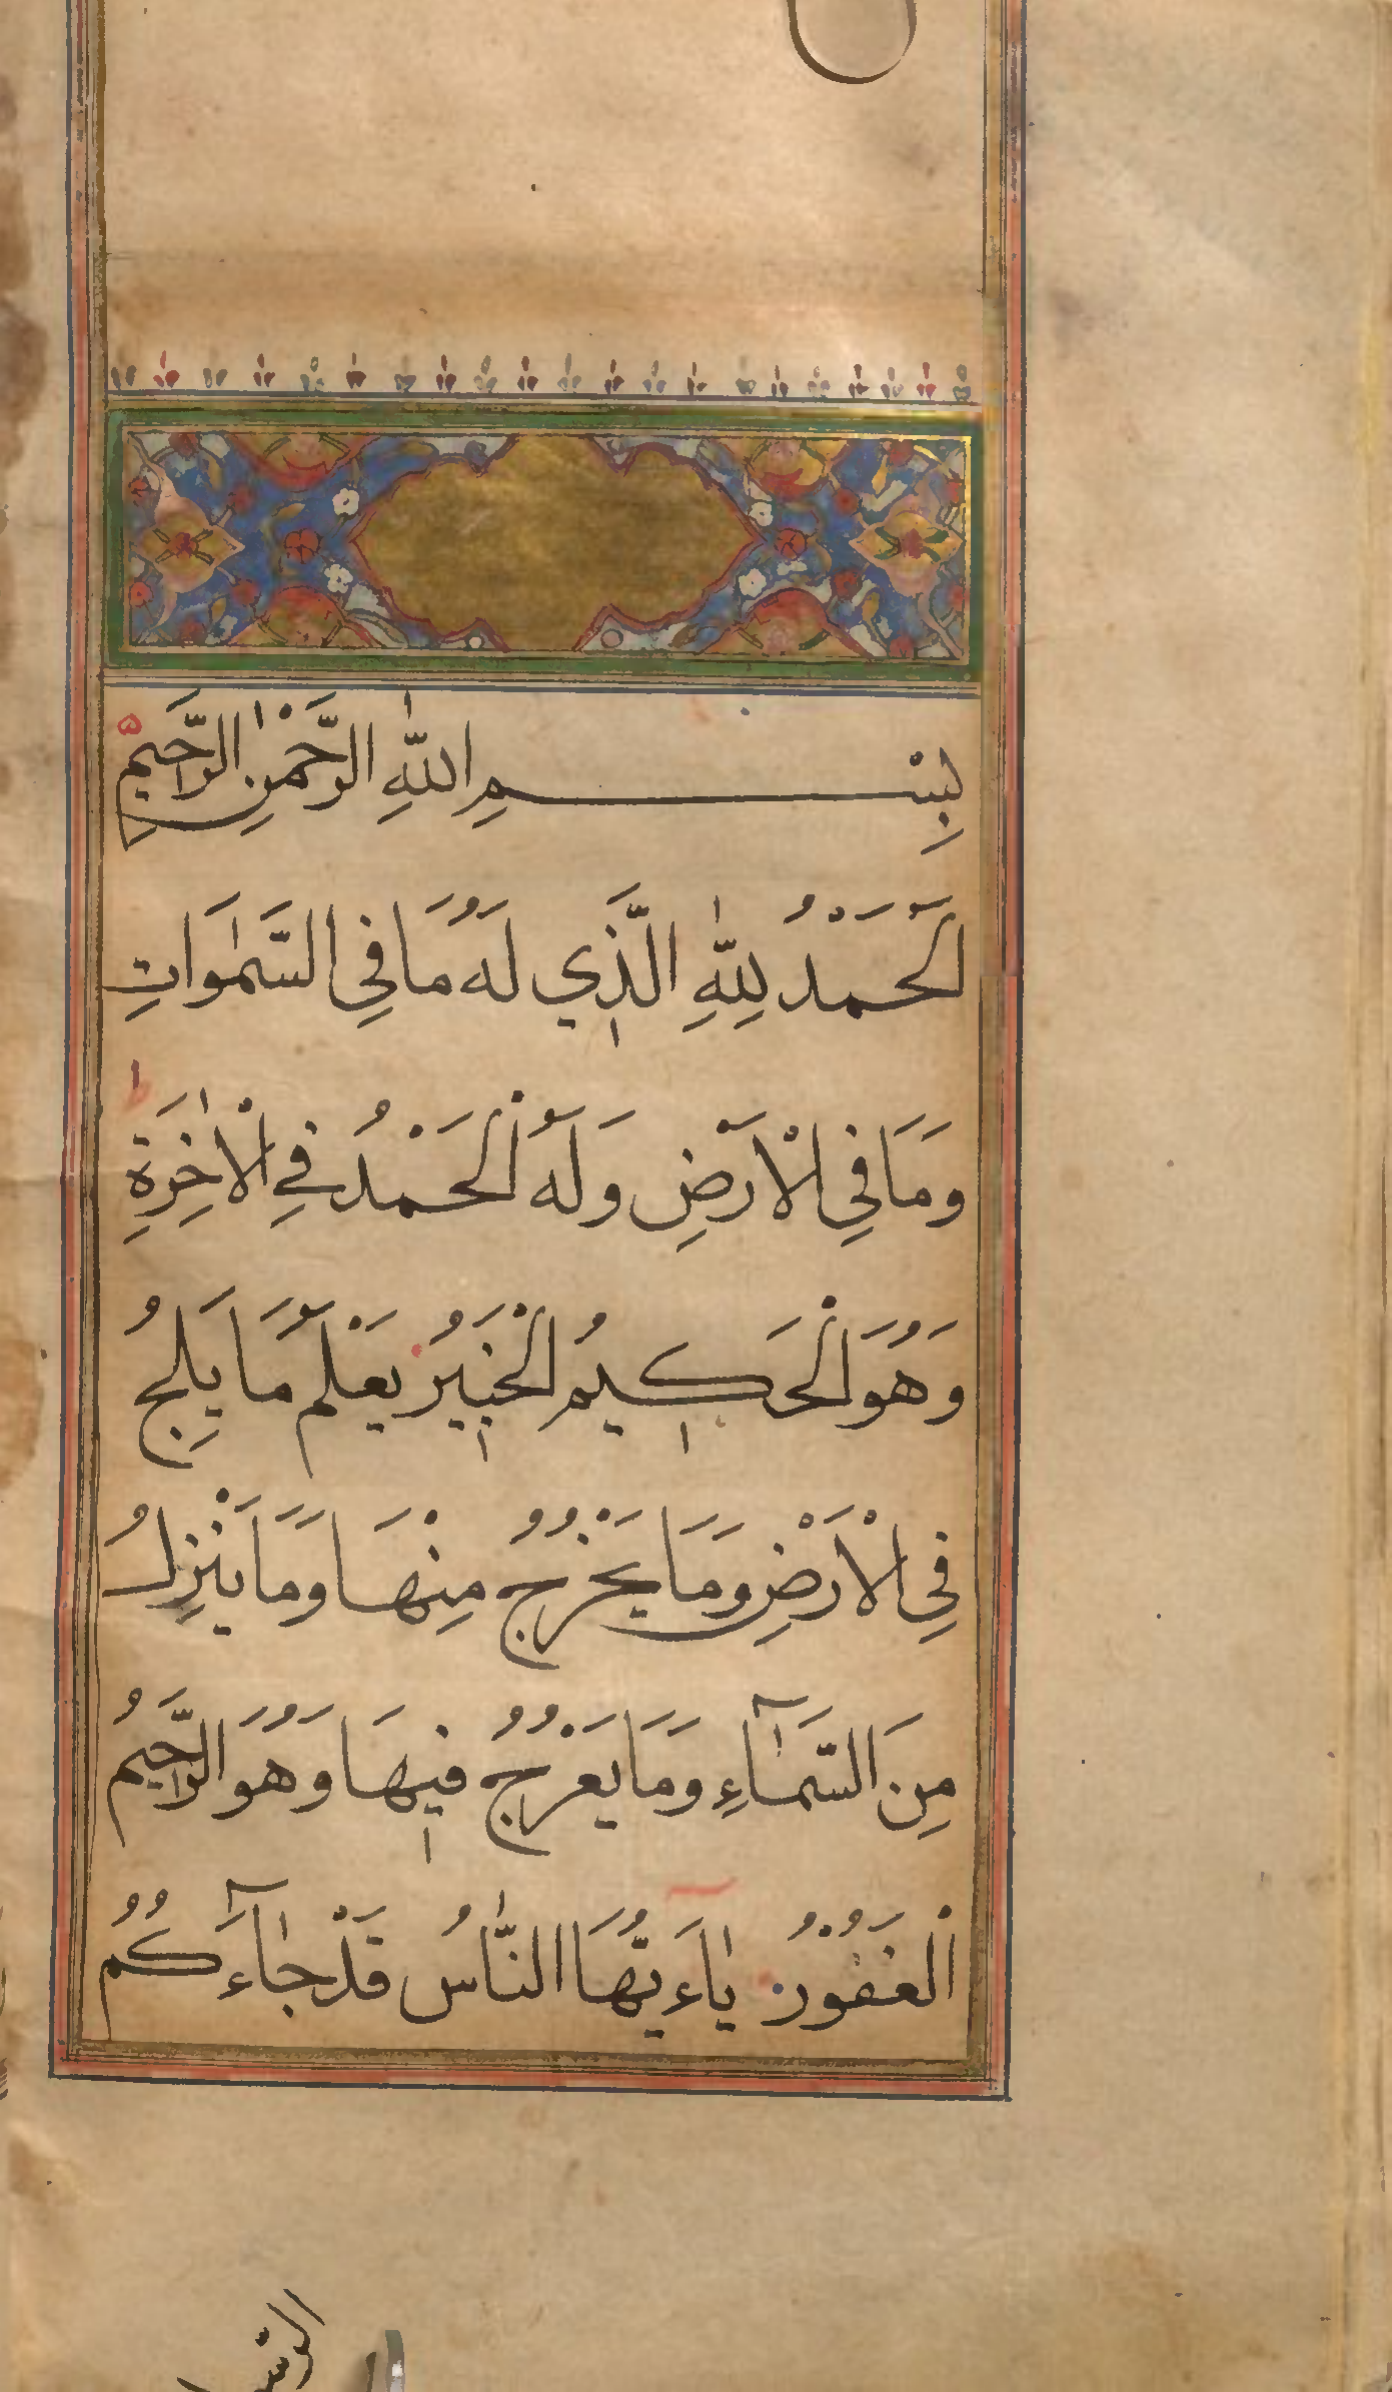 بِسْمِ اللّٰهِ الرَّحْمٰنِ الرَّحِيمِ
اَلْحَمْدُ لِلّٰهِ الَّذِي لَهُ مَا فِي السَّمٰوَاتِ
وَمَا فِي الْاَرْضِ وَلَهُ الْحَمْدُ فِي الْاٰخِرَةِ
وَهُوَ الْحَكِيمُ الْخَبِيرُ يَعْلَمُ مَا يَلِجُ
فِي الْاَرْضِ وَمَا يَخْرُجُ مِنْهَا وَمَا يَنْزِلُ
مِنَ السَّمَاءِ وَمَا يَعْرُجُ فِيهَا وَهُوَ الرَّحِيمُ
الْغَفُوْرُ يٰاَءيُّهَا النَّاسُ قَدْ جٰاءَكُمُ